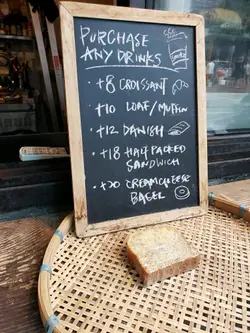 PURCHASE
ANY DRINKS
+8 CROISSANT
+10 LOAF/MUFFIN
+12 DANISH
+18 HALF PACKED
SANDWICH
+20 CREAMCHEESE
BAGEL